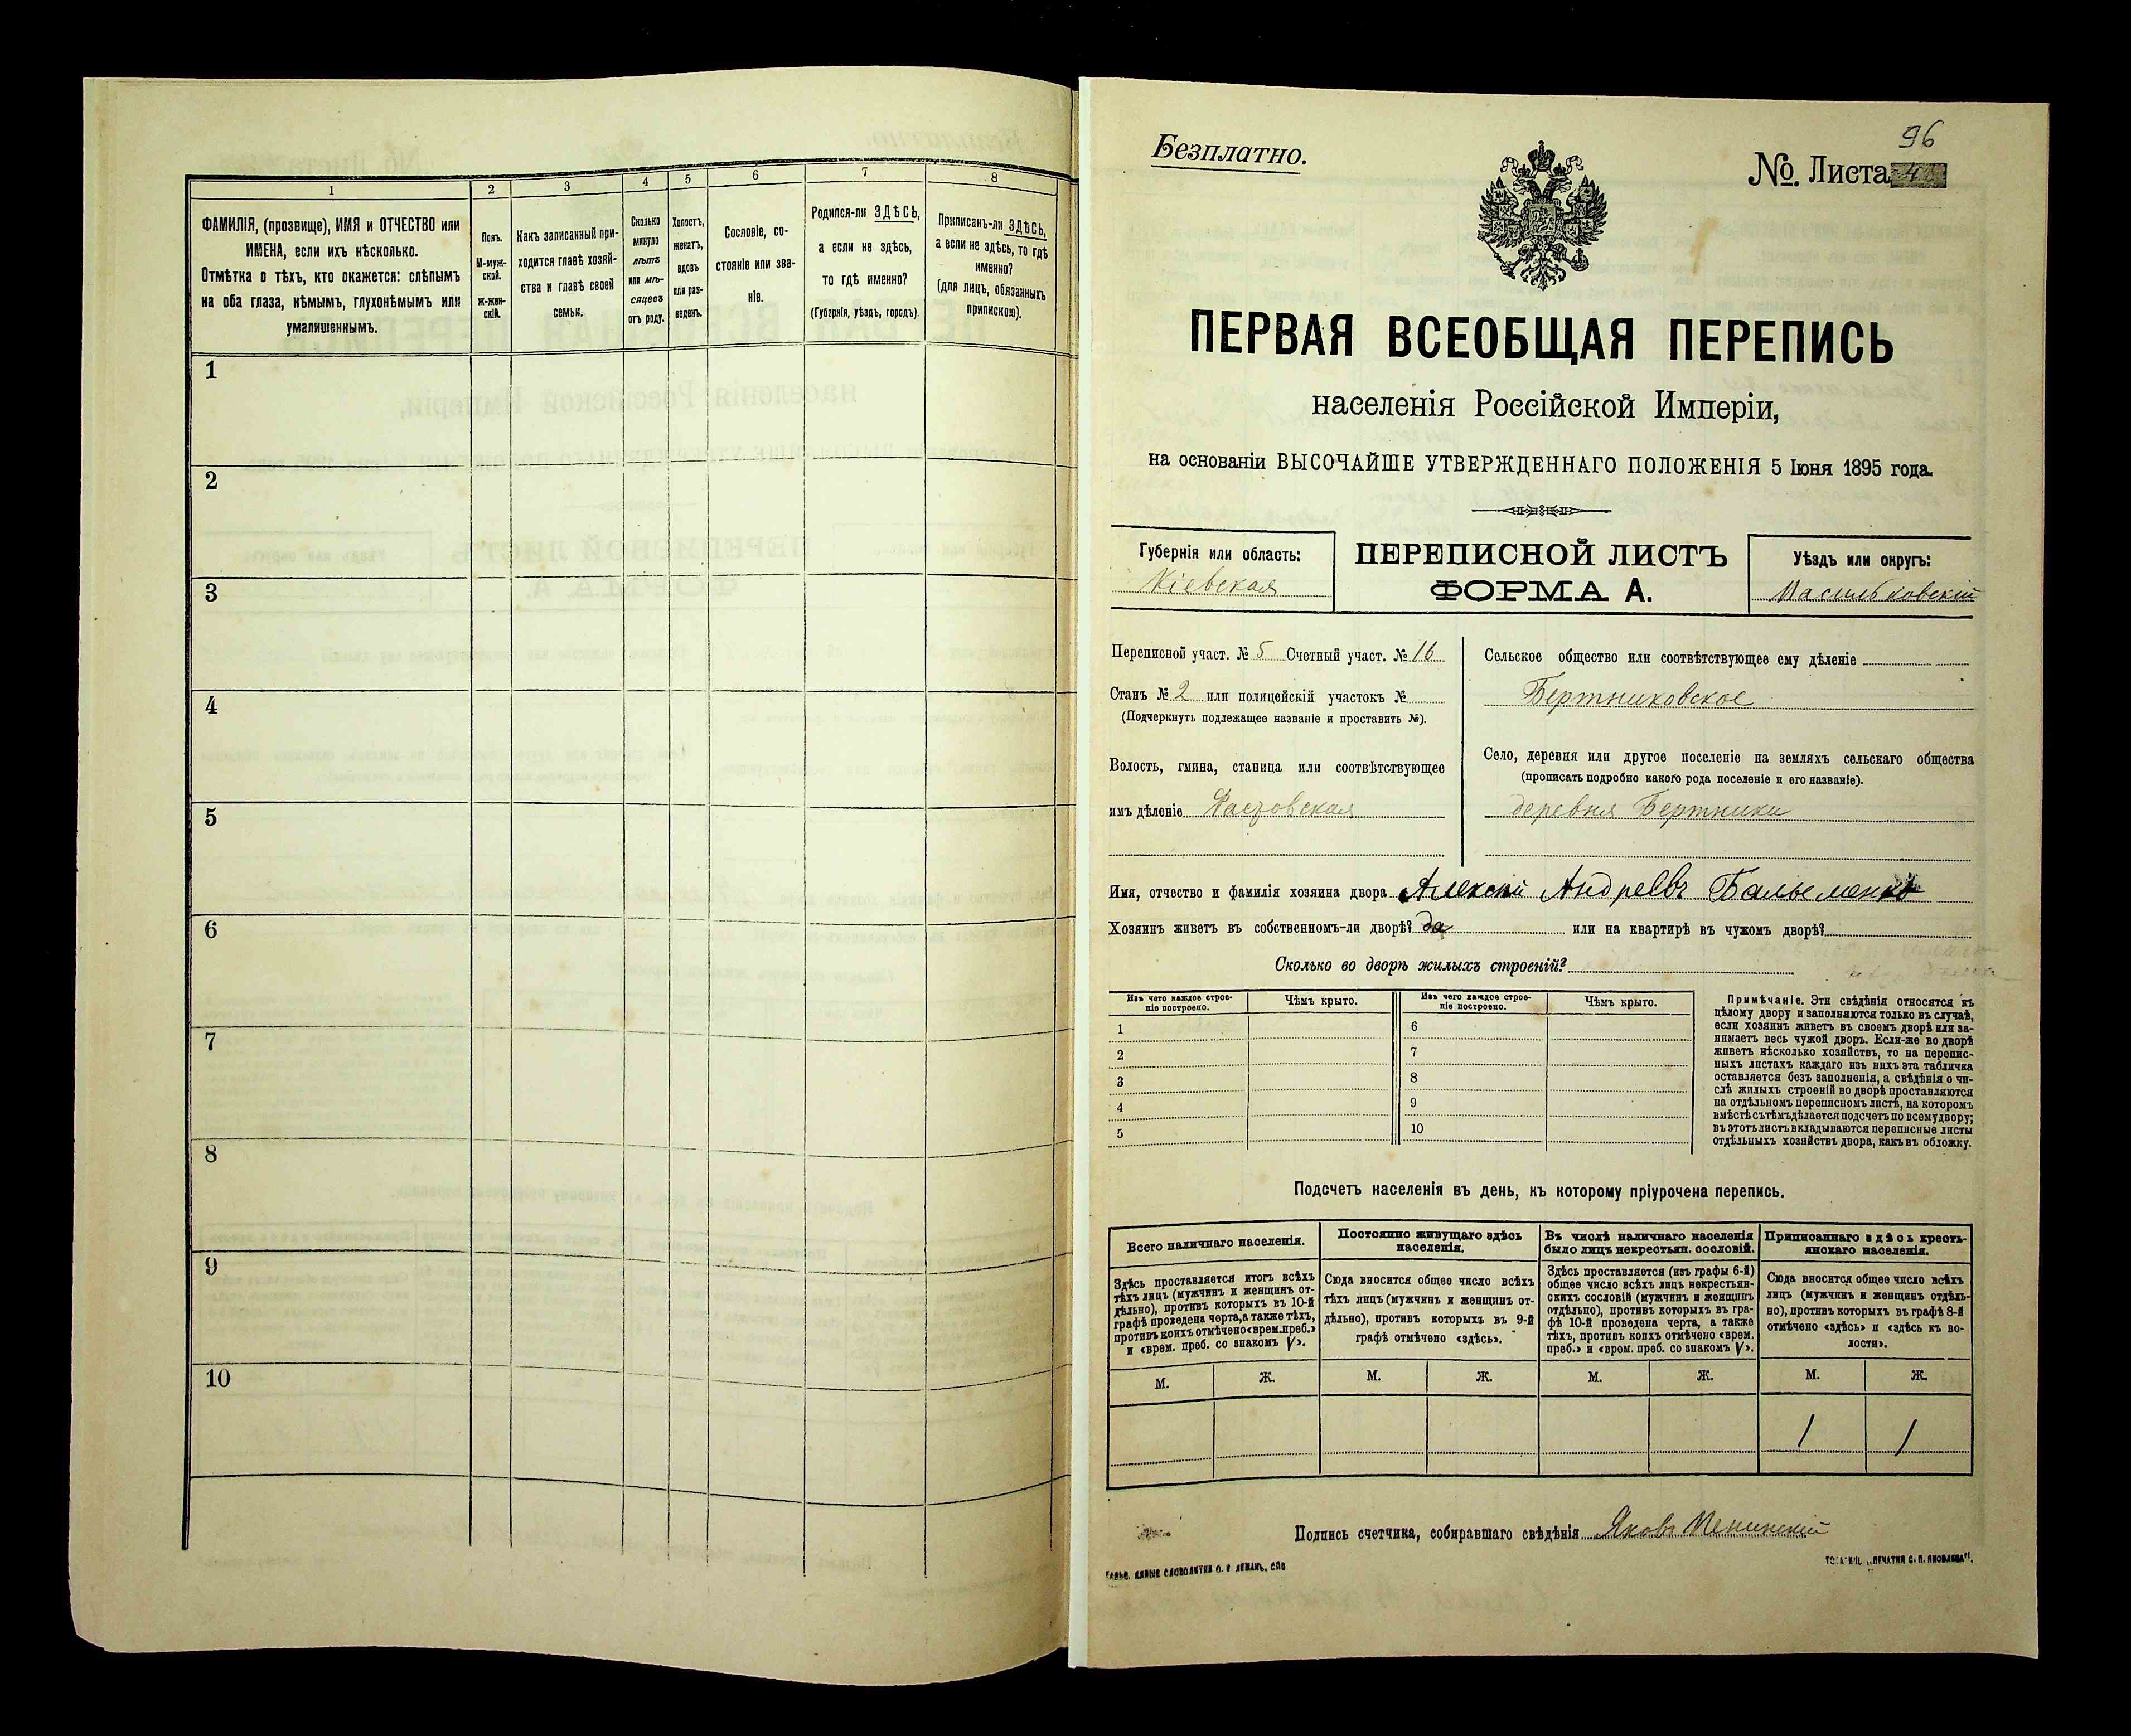 1
2
3
4
5
6
7
8
ФАМИЛІЯ, (прозвище), ИМЯ и ОТЧЕСТВО или
ИМЕНА, если ихъ нѣсколько.
Отмѣтка о тѣхъ, кто окажется: слѣпымъ
на оба глаза, нѣмымъ, глухонѣмымъ или
умалишеннымъ.
Полъ.
М-муж-
ской.
ж-жен-
скій.
Какъ записанный при-
ходится главѣ хозяй-
ства и главѣ своей
семьи.
Сколько
минуло
лѣтъ
или мѣ-
сяцевъ
отъ роду.
Холостъ,
женатъ,
вдовъ
или раз-
веденъ.
Сословіе, со-
стояніе или зва-
ніе.
Родился-ли ЗДѢСЬ,
а если не здѣсь,
то гдѣ именно?
(Губернія, уѣздъ, городъ).
Приписанъ-ли ЗДѢСЬ,
а если не здѣсь, то гдѣ
именно?
(для лицъ, обязанныхъ
припискою).
1
2
3
4
5
6
7
8
9
10
96
Безплатно.
№. Листа
ПЕРВАЯ ВСЕОБЩАЯ ПЕРЕПИСЬ
населенія Россійской Имперіи,
на основаніи ВЫСОЧАЙШЕ УТВЕРЖДЕННАГО ПОЛОЖЕНІЯ 5 Іюня 1895 года.
Губернія или область:
Кіевская
ПЕРЕПИСНОЙ ЛИСТЪ
ФОРМА А.
Уѣздъ или округъ:
Васильковскій
Переписной участ. № 5 Счетный участ. № 16
Станъ № 2 или полицейскій участокъ №
(Подчеркнуть подлежащее названіе и проставить №).
Волость, гмина, станица или соотвѣтствующее
имъ дѣленіе
Сельское общество или соотвѣтствующее ему дѣленіе
Бертниковское
Село, деревня или другое поселеніе на земляхъ сельскаго общества
(прописать подробно какого рода поселеніе и его названіе).
деревня Бертники
Имя, отчество и фамилія хозяина двора Алексѣй Андреевъ
Хозяинъ живетъ въ собственномъ-ли дворѣ? да или на квартирѣ въ чужомъ дворѣ?
Сколько во дворѣ жилыхъ строеній?
Изъ чего каждое строе-
ніе построено.
Чѣмъ крыто.
Изъ чего каждое строе-
ніе построено.
Чѣмъ крыто.
1
2
3
4
5
6
7
8
9
10
Примѣчаніе. Эти свѣдѣнія относятся къ
цѣлому двору и заполняются только въ случаѣ,
если хозяинъ живетъ въ своемъ дворѣ или за-
нимаетъ весь чужой дворъ. Если-же во дворѣ
живетъ нѣсколько хозяйствъ, то на перепис-
ныхъ листахъ каждаго изъ нихъ эта табличка
оставляется безъ заполненія, а свѣдѣнія о чи-
слѣ жилыхъ строеній во дворѣ проставляются
на отдѣльномъ переписномъ листѣ, на которомъ
вмѣстѣ съ тѣмъ дѣлается подсчетъ по всему двору;
въ этотъ листъ вкладываются переписные листы
отдѣльныхъ хозяйствъ двора, какъ въ обложку.
Подсчетъ населенія въ день, къ которому пріурочена перепись.
Всего наличнаго населенія.
Здѣсь проставляется итогъ всѣхъ
тѣхъ лицъ (мужчинъ и женщинъ от-
дѣльно), противъ которыхъ въ 10-й
графѣ проведена черта, а также тѣхъ,
противъ коихъ отмѣчено «врем. преб.»
и «врем. преб. со знакомъ V».
Постоянно живущаго здѣсь
населенія.
Сюда вносится общее число всѣхъ
тѣхъ лицъ (мужчинъ и женщинъ от-
дѣльно), противъ которыхъ въ 9-й
графѣ отмѣчено «здѣсь».
Въ числѣ наличнаго населенія
было лицъ некрестьян. сословій.
Здѣсь проставляется (изъ графы 6-й)
общее число всѣхъ лицъ некрестьян-
скихъ сословій (мужчинъ и женщинъ
отдѣльно), противъ которыхъ въ гра-
фѣ 10-й проведена черта, а также
тѣхъ, противъ коихъ отмѣчено «врем.
преб.» и «врем. преб. со знакомъ V».
Приписаннаго здѣсь кресть-
янскаго населенія.
Сюда вносится общее число всѣхъ
лицъ (мужчинъ и женщинъ отдѣль-
но), противъ которыхъ въ графѣ 8-й
отмѣчено «здѣсь» и «здѣсь къ во-
лости».
М.
Ж.
М.
Ж.
М.
Ж.
М.
Ж.
1
1
Подпись счетчика, собиравшаго свѣдѣнія Яковъ